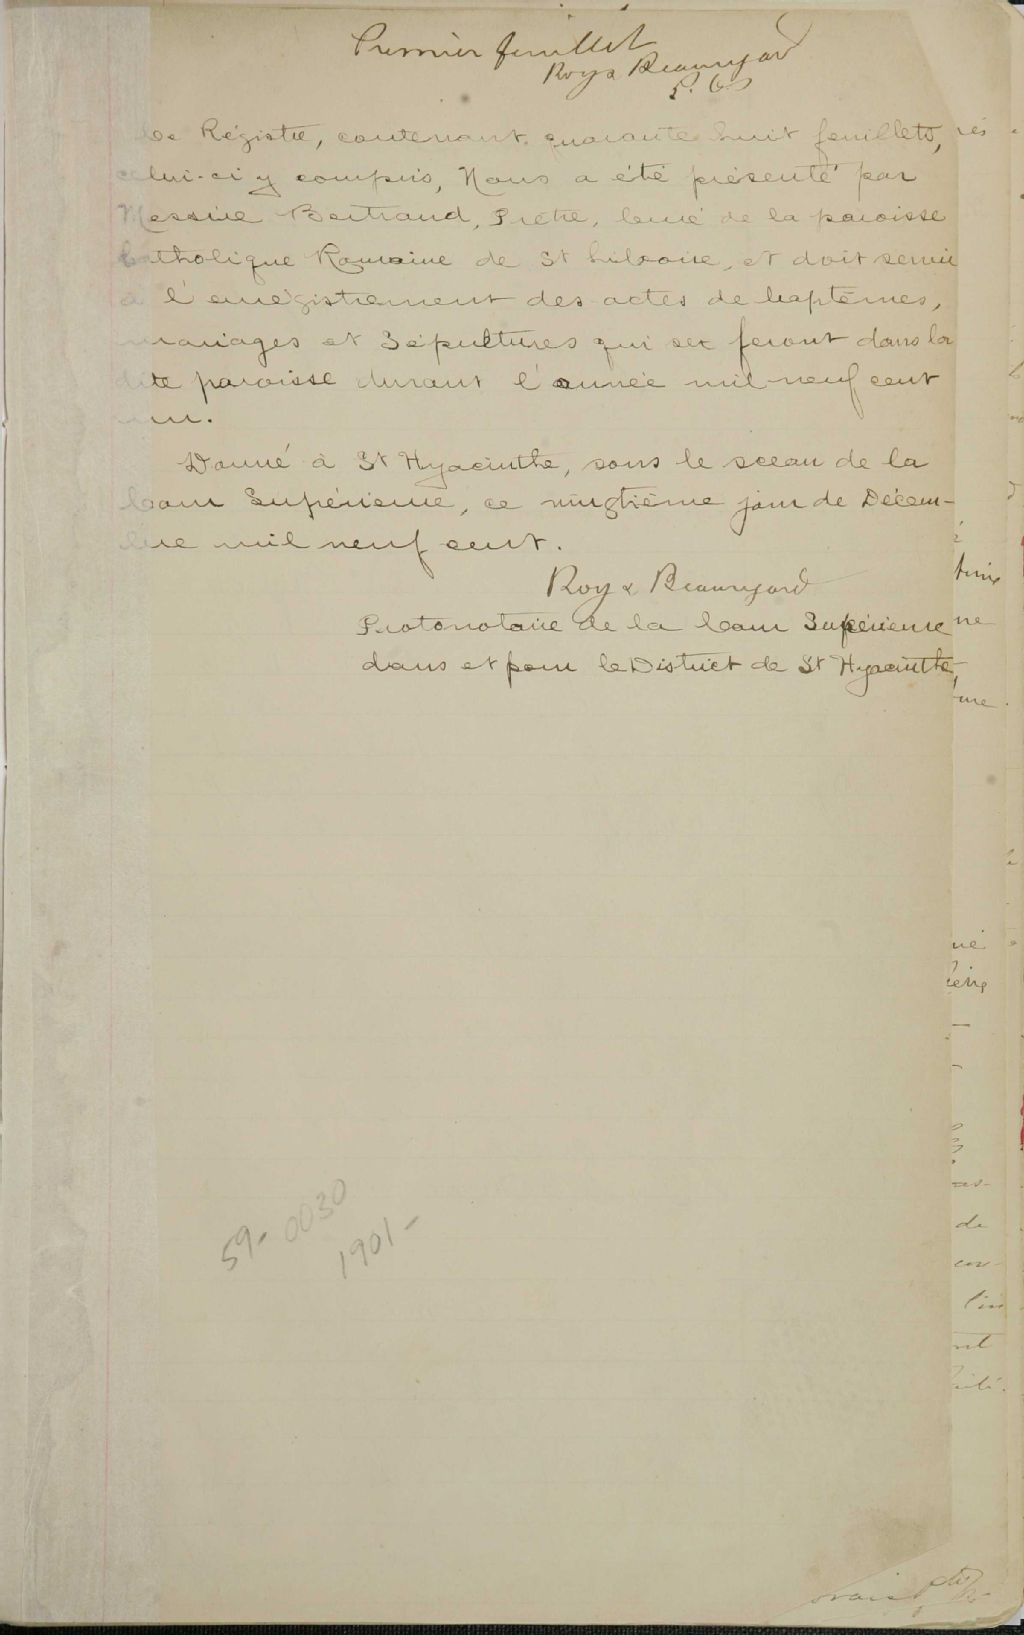 Premier feuillet
Roy & Beauregard
P. C. S
Ce Régistre, contenant quarante huit feuillets,
celui-ci y compris, Nous a été présenté par
Messire Bertrand, Prêtre, Curé de la paroisse
Catholique Romaine de St Hilaire, et doit servir
à l'enrégistrement des actes de baptêmes,
mariages et Sépultures qui se feront dans la
dite paroisse durant l'année mil neuf cent
un.
Donné à St Hyacinthe, sous le sceau de la
Cour Supérieure, ce vingtième jour de Décem-
bre mil neuf cent.
Roy & Beauregard
Protonotaire de la Cour Supérieure
dans et pour le District de St Hyacinthe
59-0030
1901-